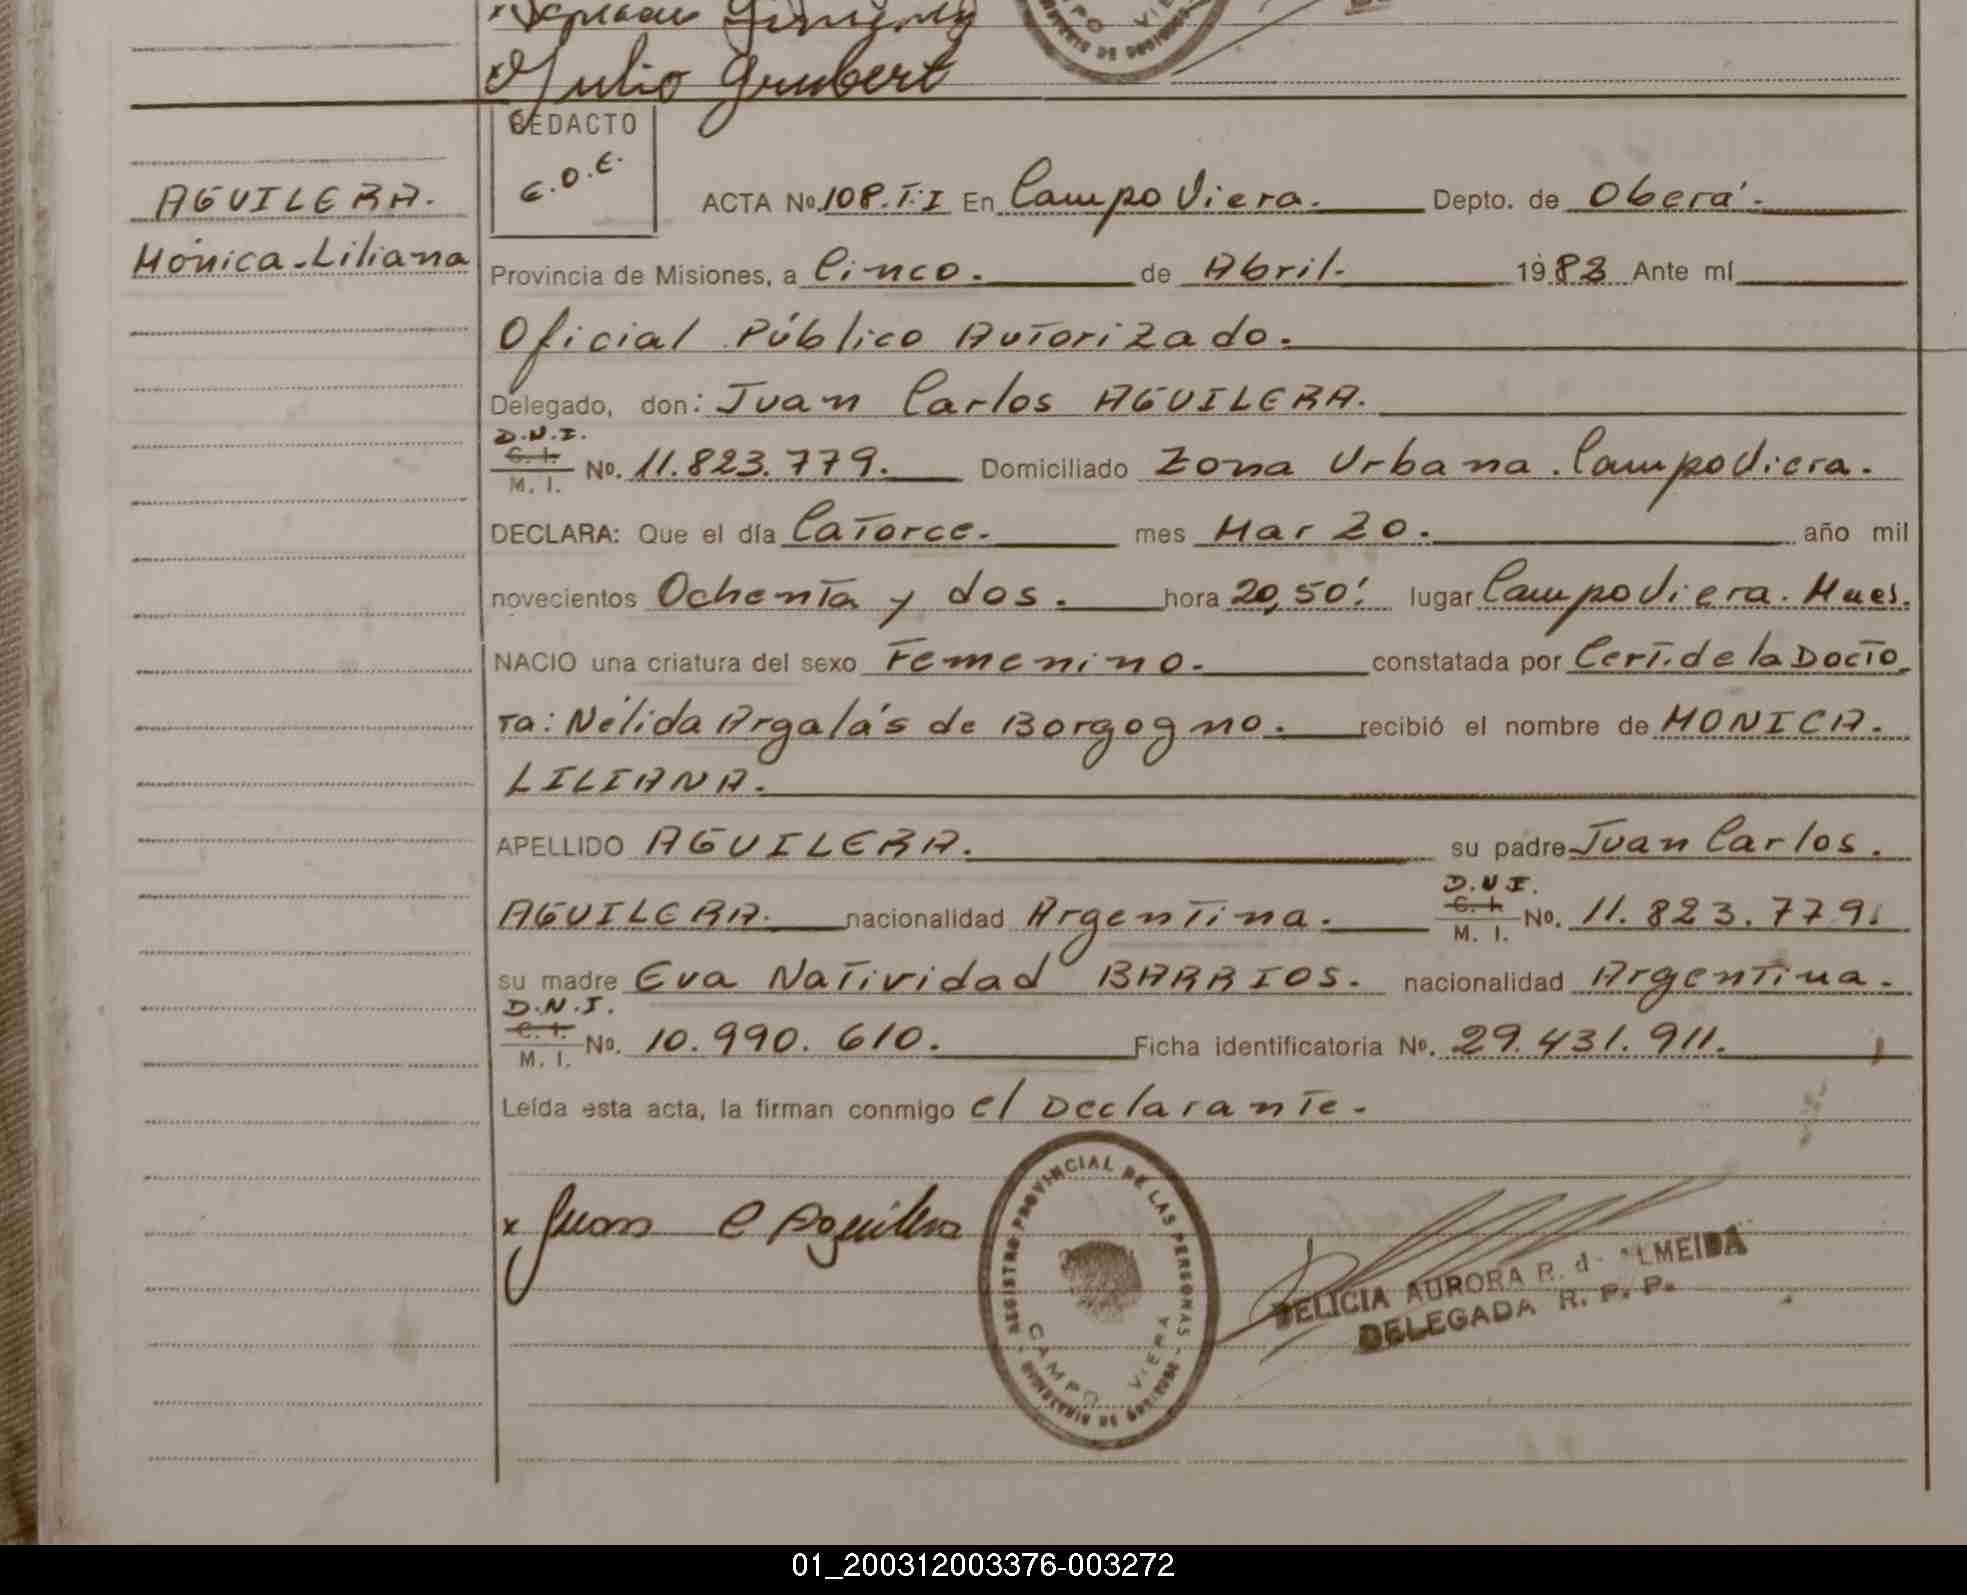 Julio Grubert
REDACTO
E.O.E.
AGUILERA.
Mónica-Liliana
ACTA No. 108.T:I En Campo Viera. Depto. de Oberá.
Provincia de Misiones, a Cinco. de Abril. 1983 Ante mí
Oficial Público Autorizado.
Delegado, don: Juan Carlos AGUILERA.
D.N.I.
C. I.
M. I. No. 11.823.779. Domiciliado Zona Urbana. Campo Viera.
DECLARA: Que el día Catorce. mes Marzo. año mil
novecientos Ochenta y dos. hora 20,50' lugar Campo Viera. Mnes.
NACIO una criatura del sexo Femenino. constatada por Cert. de la Docto
ra: Nélida Argalás de Borgogno. recibió el nombre de MONICA.
LILIANA.
APELLIDO AGUILERA. su padre Juan Carlos.
AGUILERA. nacionalidad Argentina. D.N.I. C. I. M. I. No. 11.823.779.
su madre Eva Natividad BARRIOS. nacionalidad Argentina.
D.N.I.
C. I.
M. I. No. 10.990.610. Ficha identificatoria No. 29.431.911.
Leída esta acta, la firman conmigo el Declarante.
x Juan C Aguilera
REGISTRO PROVINCIAL DE LAS PERSONAS
CAMPO VIERA
DELICIA AURORA R. d ALMEIDA
DELEGADA R. P. P.
01_200312003376-003272